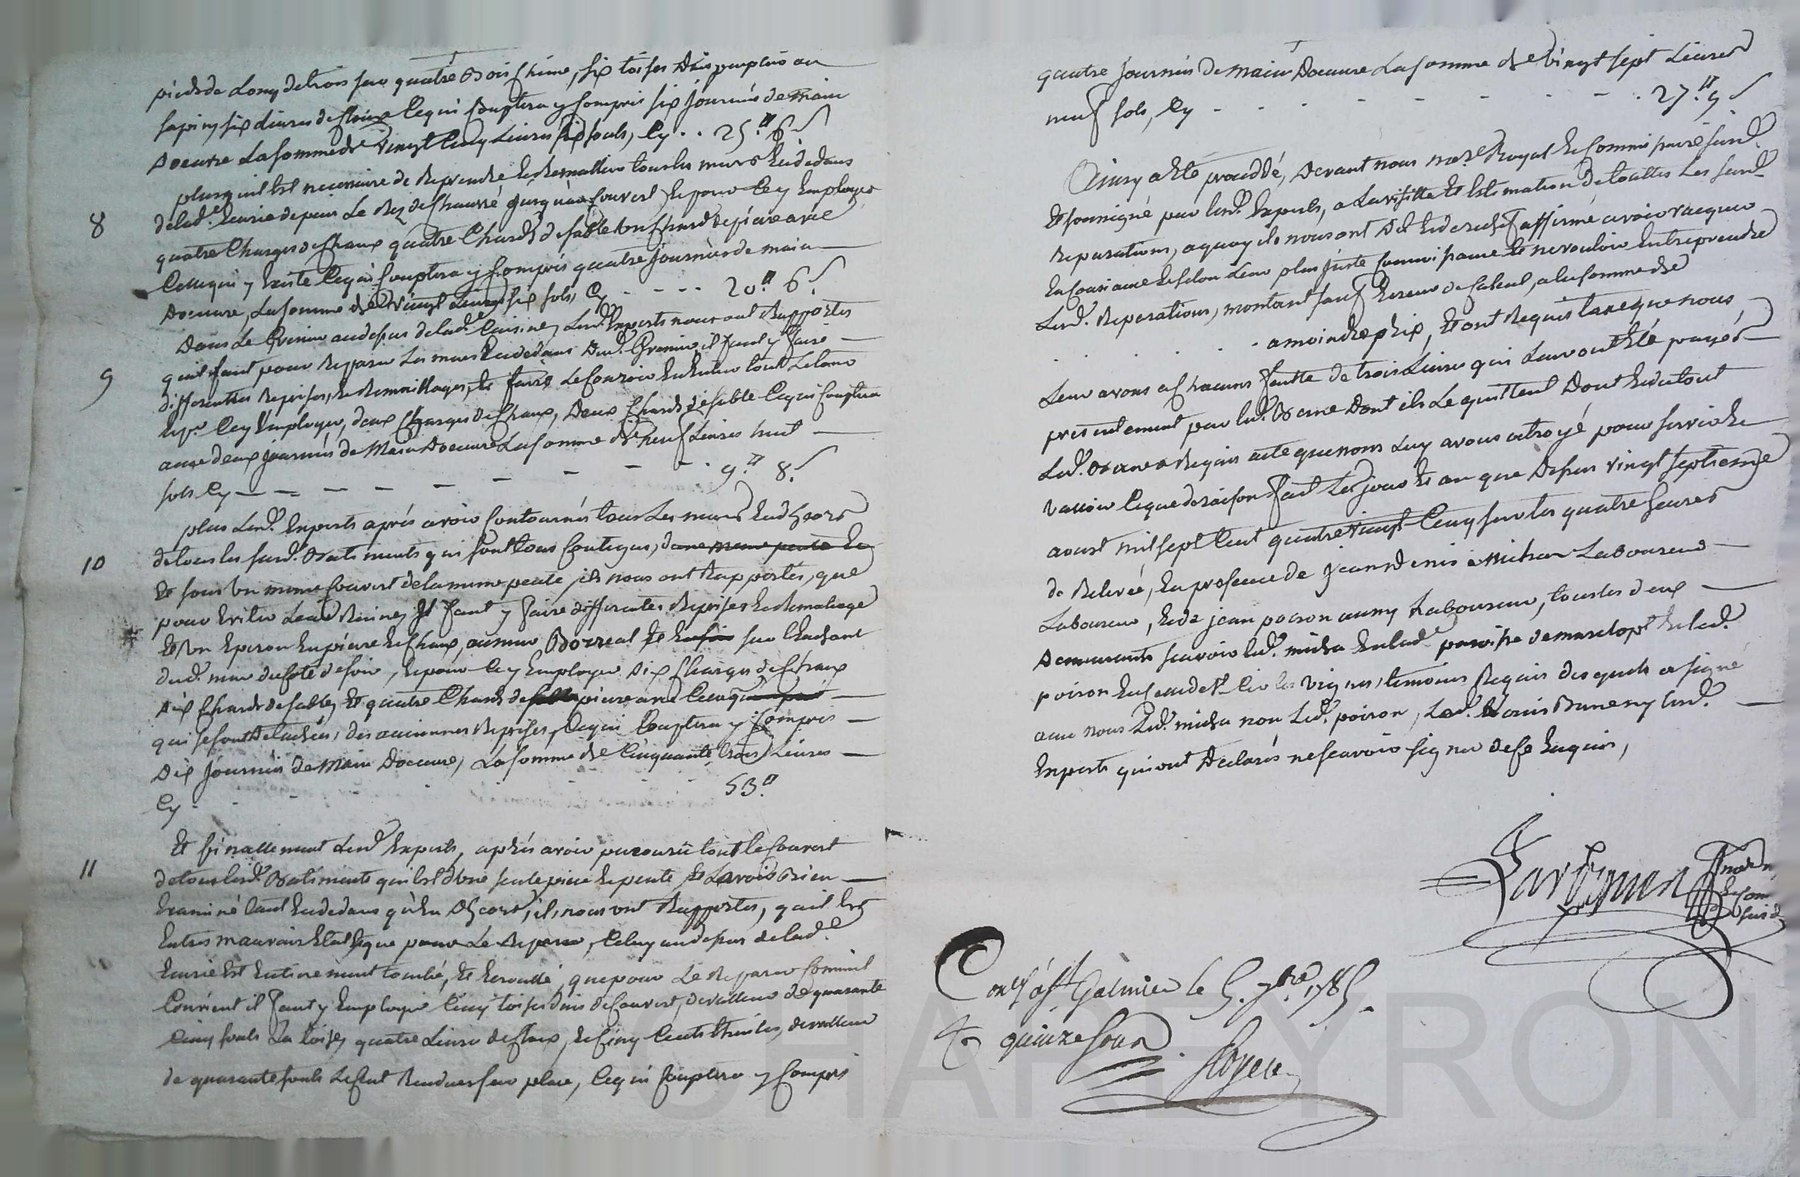 pieds de Long de trois sur quatre Bois Chene, six toises Dais peuplés au
sapin, six Livres de Cloux Cequi Couptera y Compris six Journées de Main
Doeuvre La somme de Vingt Cinq Livres six souls, Cy .. 25.tt 6 s
8
plus quil Est necessaire de Reprendre Et Remaitter tous les murs Endedans
delad.e Ecurie depuis Le Rez de Chaussé jusqu'au Couvert Et pour Cey Employer
quatre Charges de Chaux quatre Chards de sable un Chard de pierre avec
Celle qui y Existe Cequi Couptera y Compris quatre journées de main
Doeuvre, La somme de Vingt Livres six sols, Cy - - - - 20.tt 6.s
9
Dans Le Grenier audepus delad.e Cuisine, Lesd. Experts nous ont Rapportés
quil faut pour Reparer Les murs Endedans Dud. Grenier il faut y faire
differentes Reprises, Et Remaillages, et faire Le Couroir
Cey Employer, deux Charges de Chaux, Deux Chards de sable Cequi Couptera
avec deux journées de Main Doeuvre La somme de neuf Livres huit
sols Cy - - - - - - - 9.tt 8.s
10
plus Lesd. Experts aprés avoir Contournés tous Les murs Endehors
de tous les susd. Batiments qui sont tous Contigus, dune meme pente Et
Et sous un meme Couvert de la meme pente, ils nous ont Rapportés, que
pour Eviter Leur Ruine, il faut y faire differentes Reprises Et Remaliage
Et Un Eperon En pierre Et Chaux, au mur Borreal Et sur L'Enchant
dud. mur du Coté de soir, Et pour Cey Employer Dix Charges de Chaux
Dix Chards de sable, Et quatre Chards de pierre avec
qui se sont Detachées des anciennes Reprises, Cequi Couptera y Compris
Dix journées de Main Doeuvre, La somme de Cinquante trois Livres
Cy - 53.tt
11
Et finallement Lesd. Experts, aprés avoir parcouru tout le Couvert
de tous lesd. Batiments quil Est D'une seule piece Et pente Et L'avoir Bien
Examiné tant Endedans qu'En Dehors, ils nous ont Rapportés, quil Est
En tres mauvais Etat Et que pour Le Reparer, Celuy audepus delad.e
Ecurie Est Entierement tombé, Et Ecroullé, que pour Le Reparer Comme il
Convient il faut y Employer Cinq toises Dais de Couvert, de valleur de quarante
Cinq souls La toise, quatre Livres de Cloux, Et Cinq Cents thuiles, de valleur
de quarante souls Le Cent Rendues sur place, Cequi Couptera y Compris
quatre journées de Main Doeuvre La somme de Vingt sept Livres
neuf sols, Cy - - - - - - - 27.tt 9 s
Ainsy a Eté procédé, Devant nous not.re Royal Et Commissaire susd.
Et soussigné par lesd. Experts, a La visitte Et Estimation de touttes Les susd.
Reparations, a quoy ils nous ont Dit Et derechef affirmé avoir vacqué
En Consience Et selon Leur plus juste Connoissance Et ne vouloir Entreprendre
Lesd. Reparations, montant sauf Erreur de Calcul, a la somme de
. . . . . . a moindre prix, Et ont Requis taxe que nous
Leur avons a Chacuns faitte de trois Livres qui Leur ont Eté payés
presentement par led. Dont ils Le quittent Dont Et du tout
Led. Requis acte que nous Luy avons octroyé pour servir Et
valloir Ceque de raison fait Les jour Et an que Depus vingt septieme
aoust mil sept Cent quatre vingt Cinq sur les quatre heures
de Relevée, En presence de jean denis Michu Laboureur
Laboureur, Et de jean poison aussy Laboureur, tous les deux
Demeurants sçavoir led. michu En lad.e paroisse de
poison En Celle de St. les vignes, temoins Requis desquels a signé
avec nous Led. michu non Led. poison, Lesd. Lesd.
Experts qui ont Declarés ne sçavoir signer de Ce Enquis,
not.re R.
Et Com.
susd.
Con.lé à St Galmier le 5. 7bre. 1785.
R quinze sous
CHAPEYRON